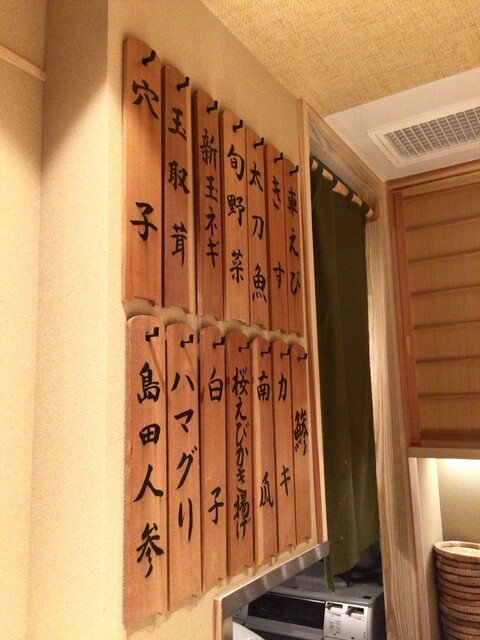 車えび
きす
太刀魚
旬野菜
新玉ネギ
玉取茸
穴子
鯵
カキ
南瓜
桜えびかき揚げ
白子
ハマグリ
島田人参